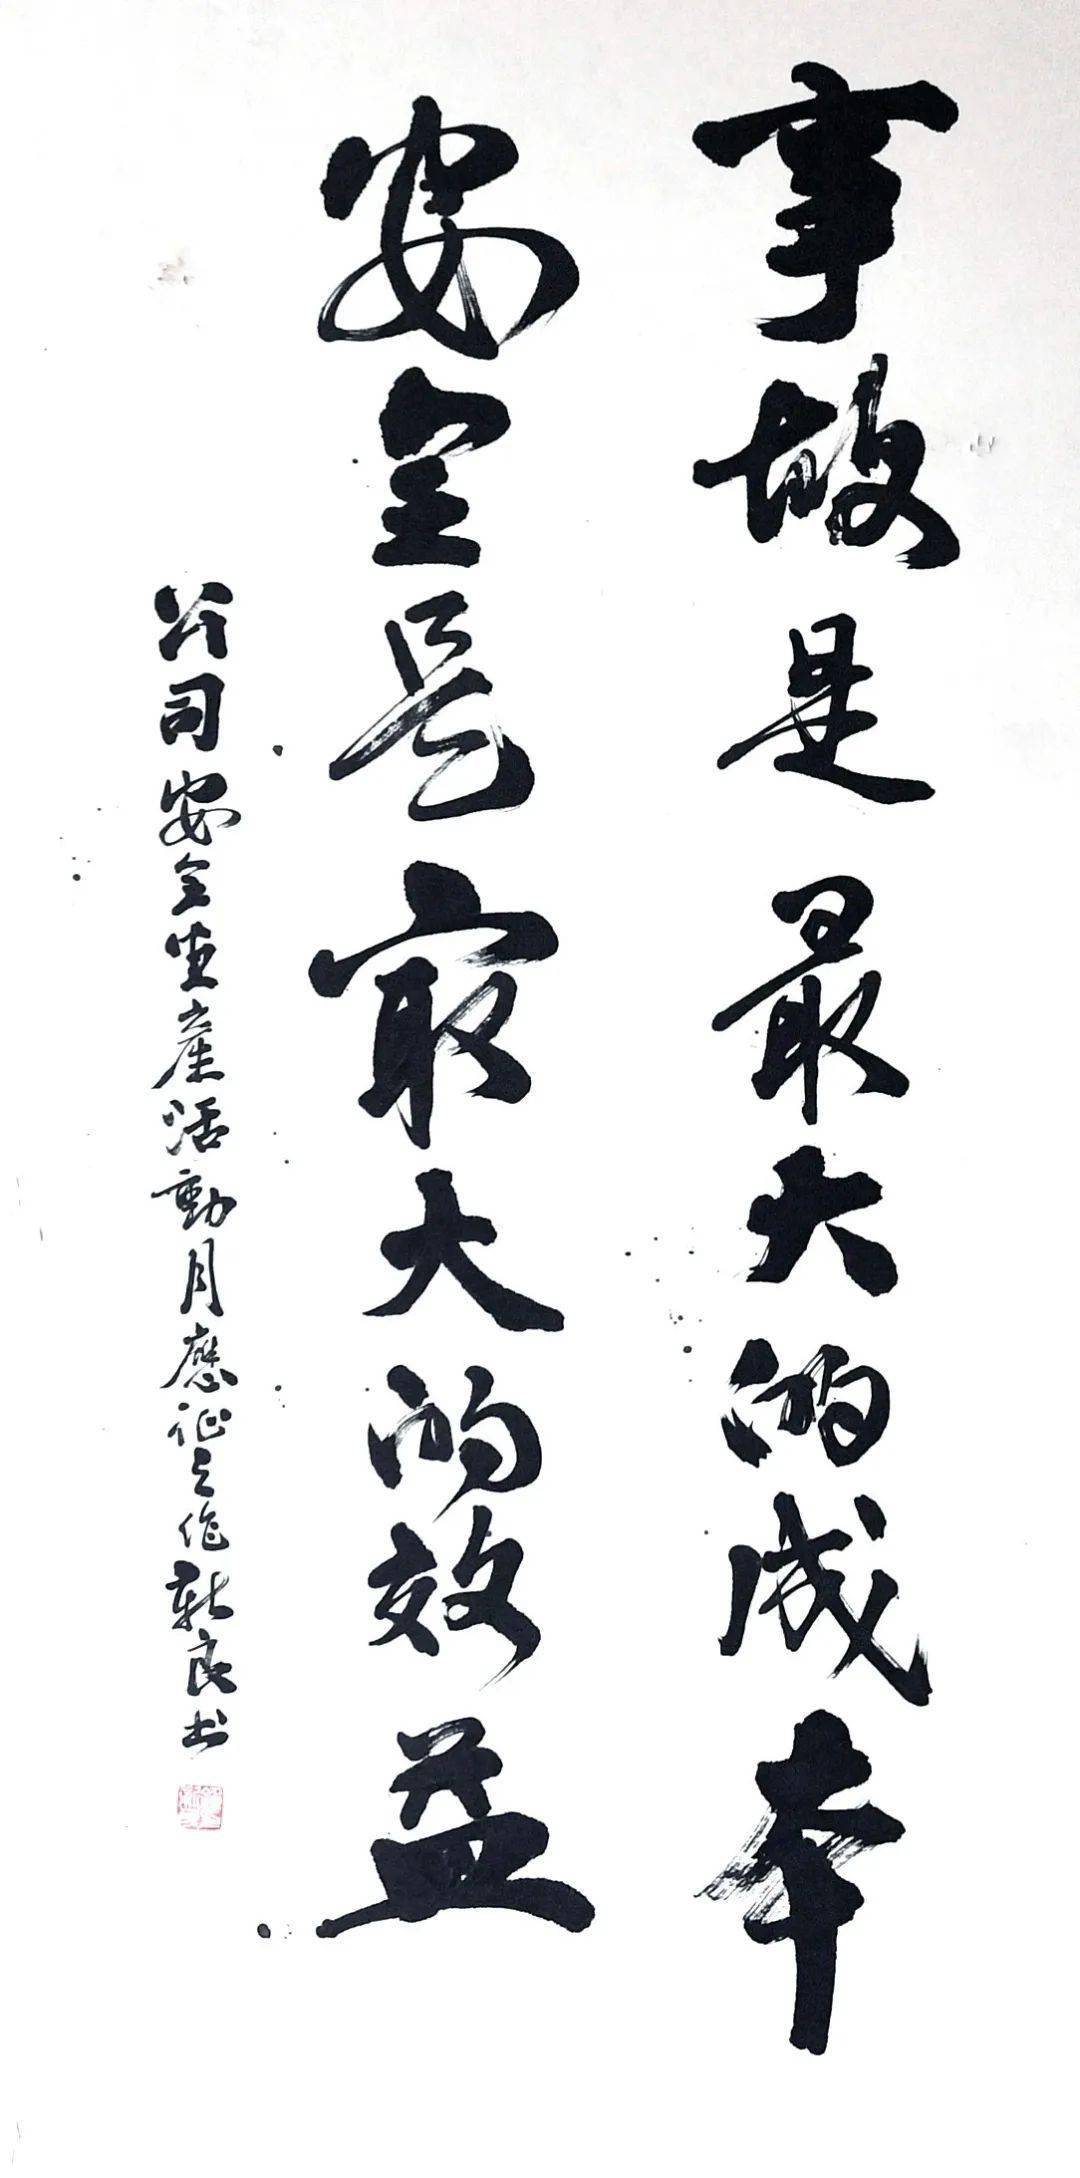 事故是最大的成本
安全是最大的效益
公司安全生產活動月應征之作新良书